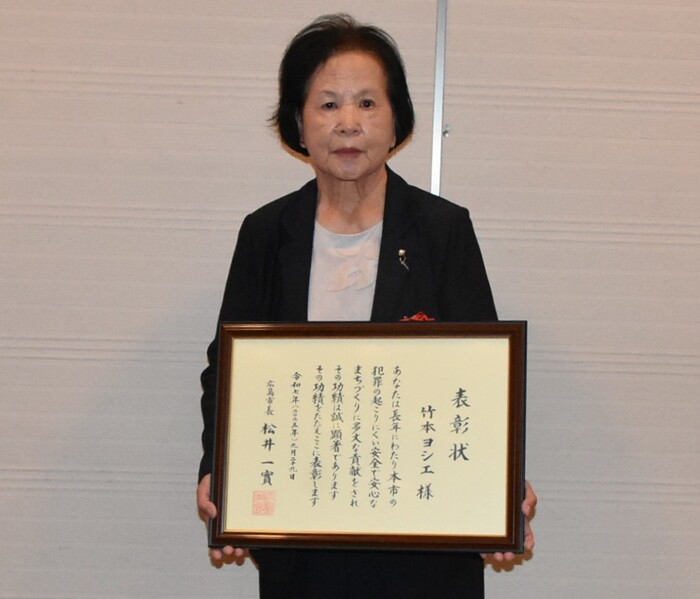 表彰状
竹本ヨシエ 様
あなたは長年にわたり本市の
犯罪の起こりにくい安全で安心な
まちづくりに多大な貢献をされ
その功績は誠に顕著であります
その功績をたたえここに表彰します
広島市長 松井一實